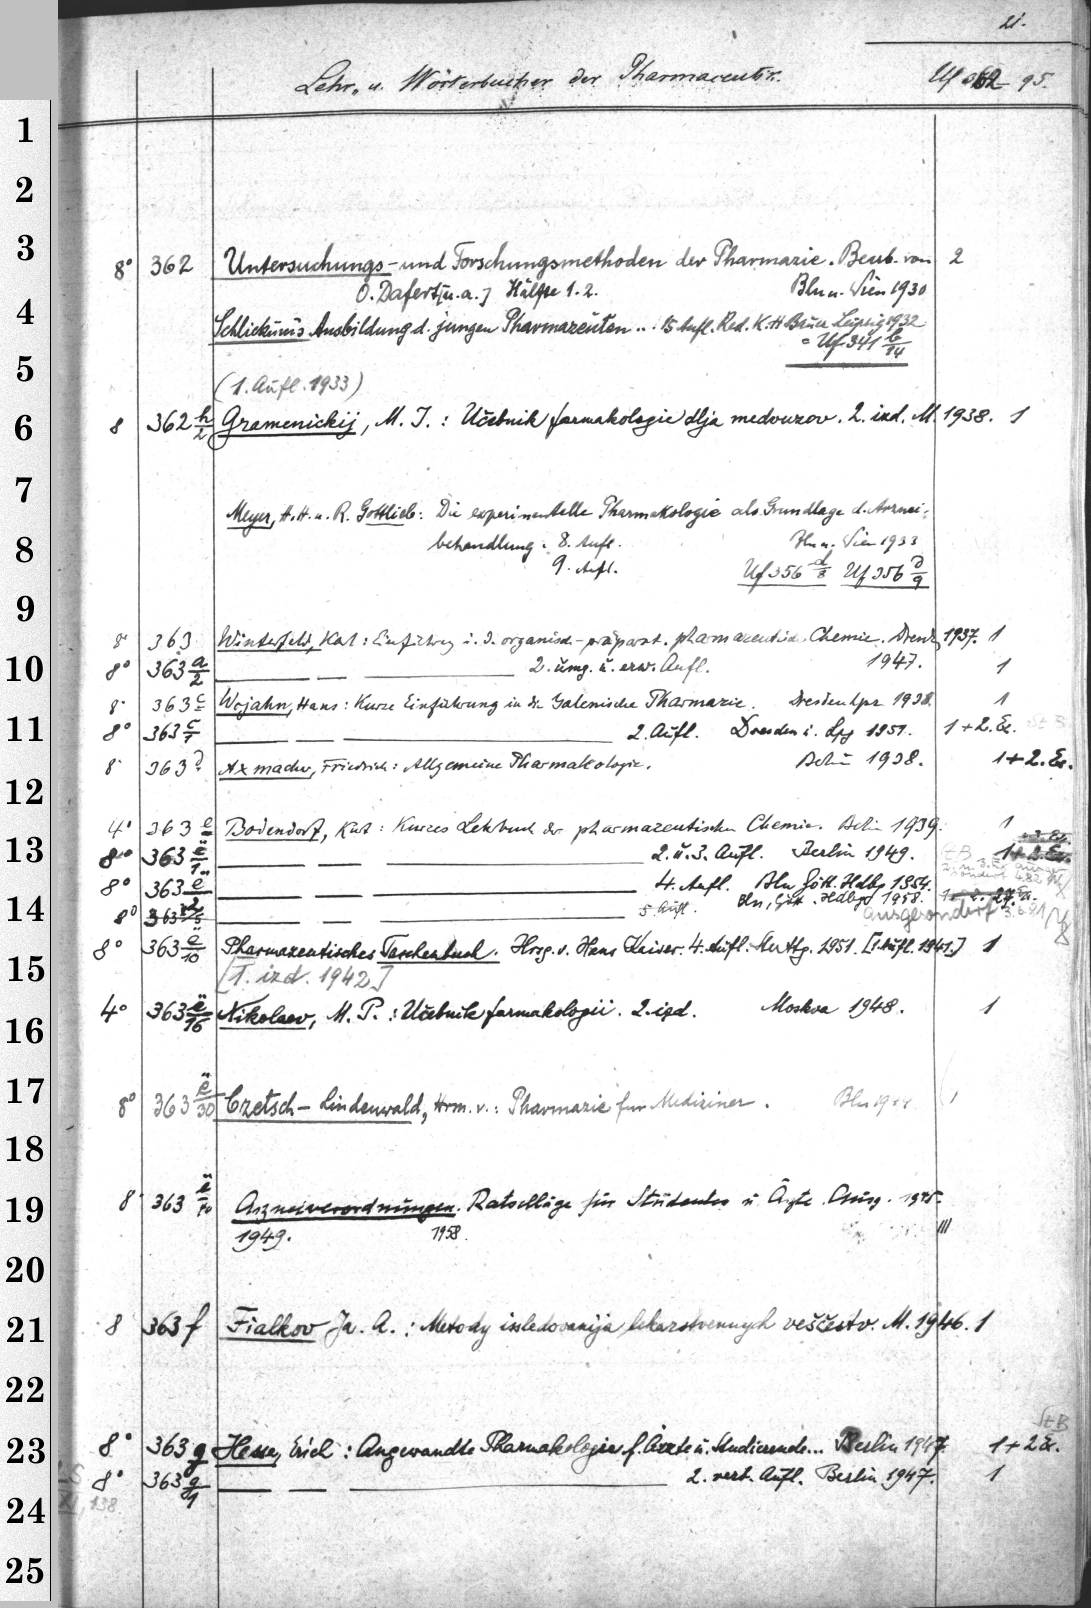 21.
Lehr- u. Wörterbücher der Pharmaceutik. Uf 362 95.
1
2
3
8° 362 Untersuchungs- und Forschungsmethoden der Pharmazie. Bearb. von 2
O. Dafert [u. a.] Hälfte 1. 2. Bln u. Wien 1930
4
Schlickum's Ausbildung d. jungen Pharmazeuten .. : 15 Aufl. Red. K. H. Bauer Leipzig 1932
= Uf 341 b/14
5
(1. Aufl. 1933)
6
8 362 h/2 Gramenickij, M. I. : Učebnik farmakologie dlja medvuzov. 2. izd. M. 1938. 1
7
Meyer, H. H. u. R. Gottlieb: Die experimentelle Pharmakologie als Grundlage d. Arznei-
8
behandlung. 8. Aufl. Bln u. Wien 1933
9. Aufl. Uf 356 d/8 Uf 356 d/9
9
8° 363 Winterfeld, Karl: Einführung i. d. organisch-präparat. pharmazeutische Chemie. Dresd. 1937. 1
10
8° 363 a/2 — — — 2. umg. u. erw. Aufl. 1947. 1
8° 363 c Wojahn, Hans: Kurze Einführung in die Galenische Pharmazie. Dresden Lpz 1938. 1
11
8° 363 c/1 — — — 2. Aufl. Dresden u. Lpz 1951. 1 + 2. Ex. StB
8° 363 d Axmacher, Friedrich: Allgemeine Pharmakologie. Berlin 1938. 1 + 2. Ex.
12
4° 363 e Bodendorf, Kurt: Kurzes Lehrbuch der pharmazeutischen Chemie. Berlin 1939. 1
+ 3. Ex.
13
8° 363 ë/1 — — — 2. u. 3. Aufl. Berlin 1949. StB 1 + 2. Ex.
8° 363 ë/2 — — — 4. Aufl. Bln Gött. Hdlbg 1954.
14
8° 363 ë/5 — — — 5. Aufl. Bln, Gött. Hdlbg 1958. ausgesondert 3.6.91
8° 363 ë/10 Pharmazeutisches Taschenbuch. Hrsg. v. Hans Kaiser. 4. Aufl. Stuttg. 1951. [1. Aufl. 1941.] 1
15
[1. izd. 1942]
16
4° 363 ë/16 Nikolaev, M. P. : Učebnik farmakologii. 2. izd. Moskva 1948. 1
17
8° 363 ë/30 Czetsch-Lindenwald, Herm. v. : Pharmazie für Mediziner. Bln 1
18
19
8° 363 ë/70 Arzneiverordnungen. Ratschläge für Studenten u. Ärzte. Ausg. 1945.
1949. 1958. III
20
21
8 363 f Fialkov Ja. A. : Metody issledovanija lekarstvennych veščestv. M. 1946. 1
22
StB
23
8° 363 g Hesse, Erich : Angewandte Pharmakologie f. Ärzte u. Studierende... Berlin 1947. 1 + 2 Ex.
8° 363 g/1 — — — 2. verb. Aufl. Berlin 1947. 1
24
138
25